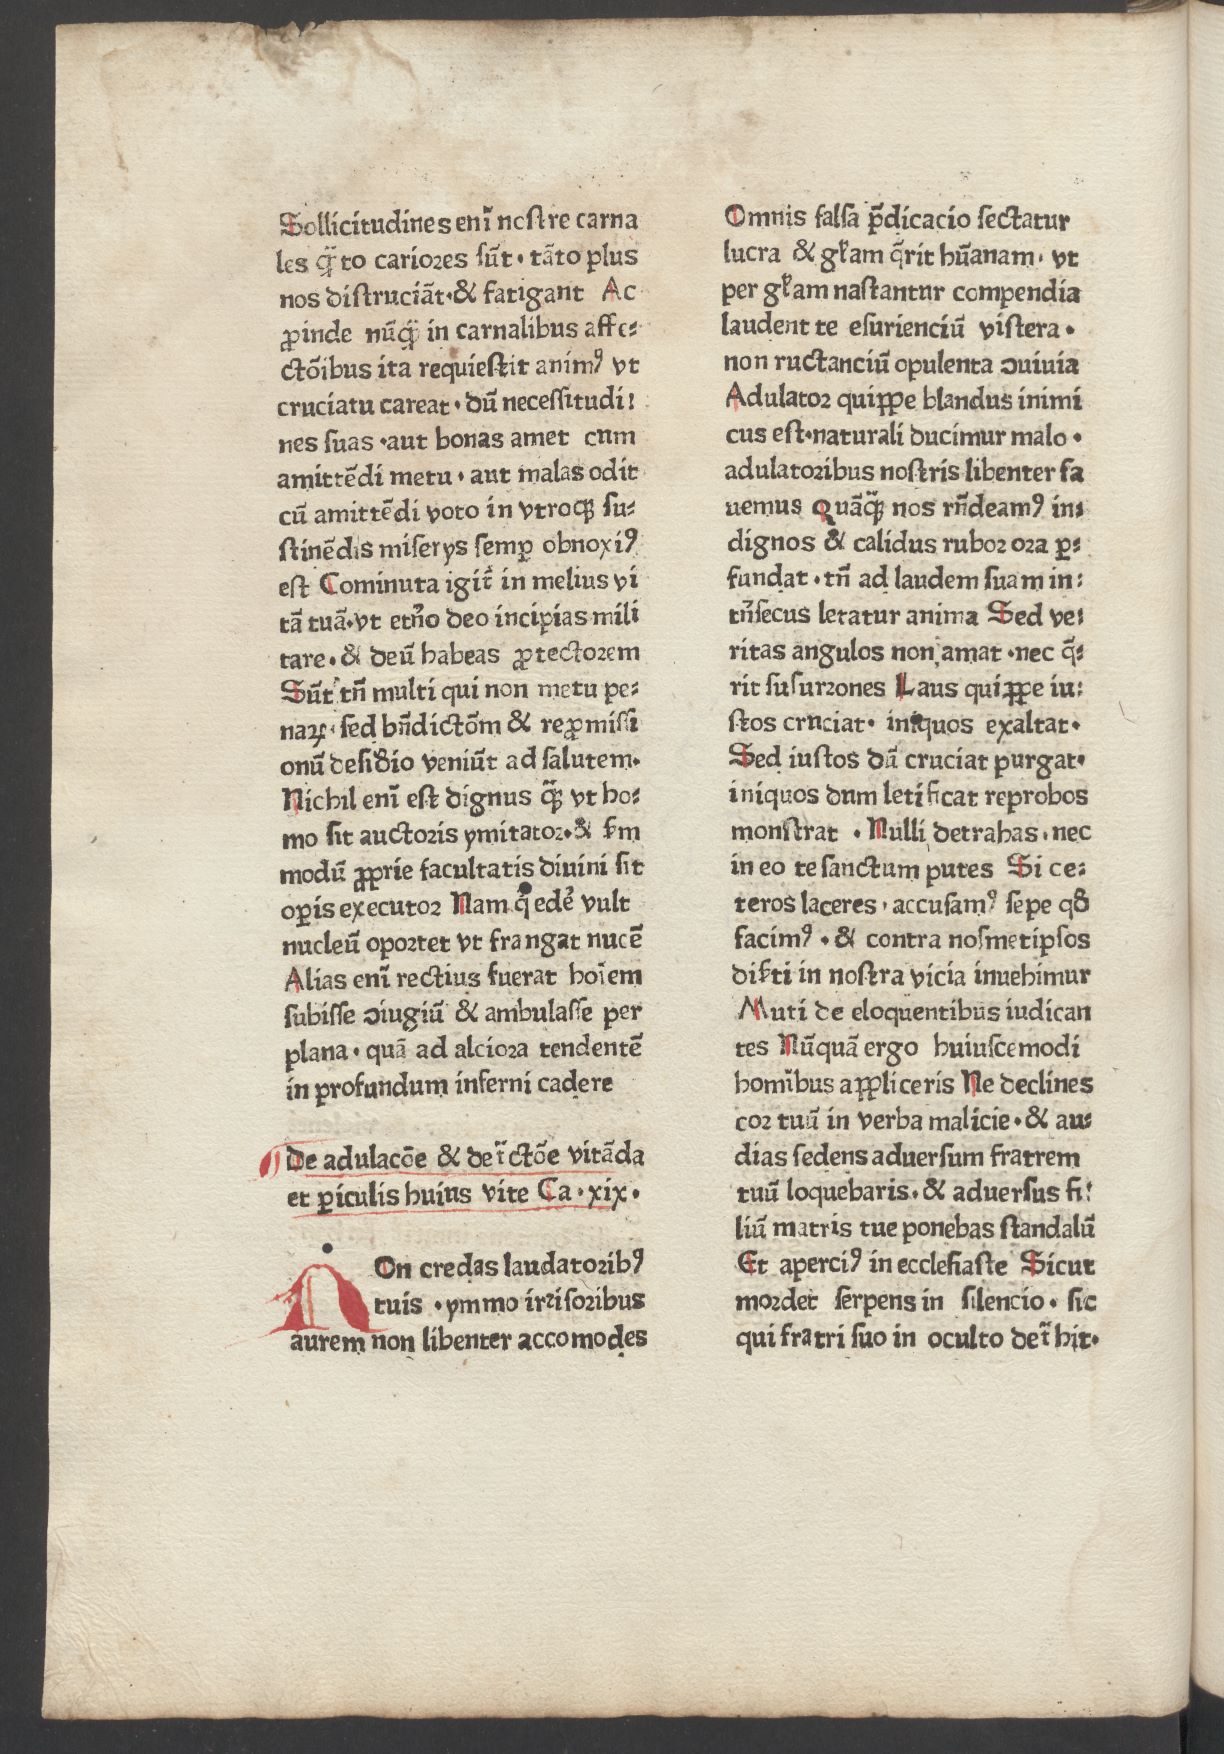 Sollicitudines enī nostre carna
les q̄to cariores sūt · tāto plus
nos distruciāt · & fatigant Ac
ꝓinde nūq̄ in carnalibus affe⸗
ctōibus ita requiestit animꝰ vt
cruciatu careat · dū necessitudi⸗
nes suas · aut bonas amet cum
amittēdi metu · aut malas odit
cū amittēdi voto in vtroqꝫ su⸗
stinēdis miserys semꝑ obnoxiꝰ
est Cominuta igit̄ in melius vi
tā tuā · vt etn̄o deo incipias mili
tare · & deū habeas ꝓtectorem
Sūt tn̄ multi qui non metu pe⸗
naꝝ · sed bn̄dictōm & reꝓmissi
onū desid̄io veniūt ad salutem ·
Nichil enī est dignus qꝫ̄ vt ho⸗
mo sit auctoris ymitator · & ẜm
modū ꝓprie facultatis diuini sit
oꝑis executor Nam q̄ edē vult
nucleū oportet vt frangat nucē
Alias enī rectius fuerat hoīem
subisse ↄiugiū & ambulasse per
plana · quā ad alciora tendentē
in profundum inferni cadere
De adulacōe & det̄ctōe vitāda
et ꝑiculis huius vite Ca · xix ·
NOn credas laudatoribꝰ
tuis · ymmo irrisoribus
aurem non libenter accomodes
Omnis falsa p̄dicacio sectatur
lucra & gl̄am q̄rit hūanam · vt
per gl̄am nastantur compendia
laudent te esurienciū vistera ·
non ructanciū opulenta ↄuiuia
Adulator quippe blandus inimi
cus est · naturali ducimur malo ·
adulatoribus nostris libenter fa
uemus Quāqꝫ̄ nos rn̄deamꝰ in⸗
dignos & calidus rubor ora ꝑ⸗
fundat · tn̄ ad laudem suam in⸗
tn̄secus letatur anima Sed ve⸗
ritas angulos non amat · nec q̄⸗
rit susurrones Laus quippe iu⸗
stos cruciat · iniquos exaltat ·
Sed iustos dū cruciat purgat ·
iniquos dum letificat reprobos
monstrat · Nulli detrahas · nec
in eo te sanctum putes Si ce⸗
teros laceres · accusamꝰ sepe qd̄
facimꝰ · & contra nosmetipsos
diẜti in nostra vicia inuehimur
Muti de eloquentibus iudican
tes Nūquā ergo huiuscemodi
homībus appliceris Ne declines
cor tuū in verba malicie · & au⸗
dias sedens aduersum fratrem
tuū loquebaris · & aduersus fi⸗
liū matris tue ponebas standalū
Et aperciꝰ in ecclesiaste Sicut
mordet serpens in silencio · sic
qui fratri suo in oculto det̄hit ·